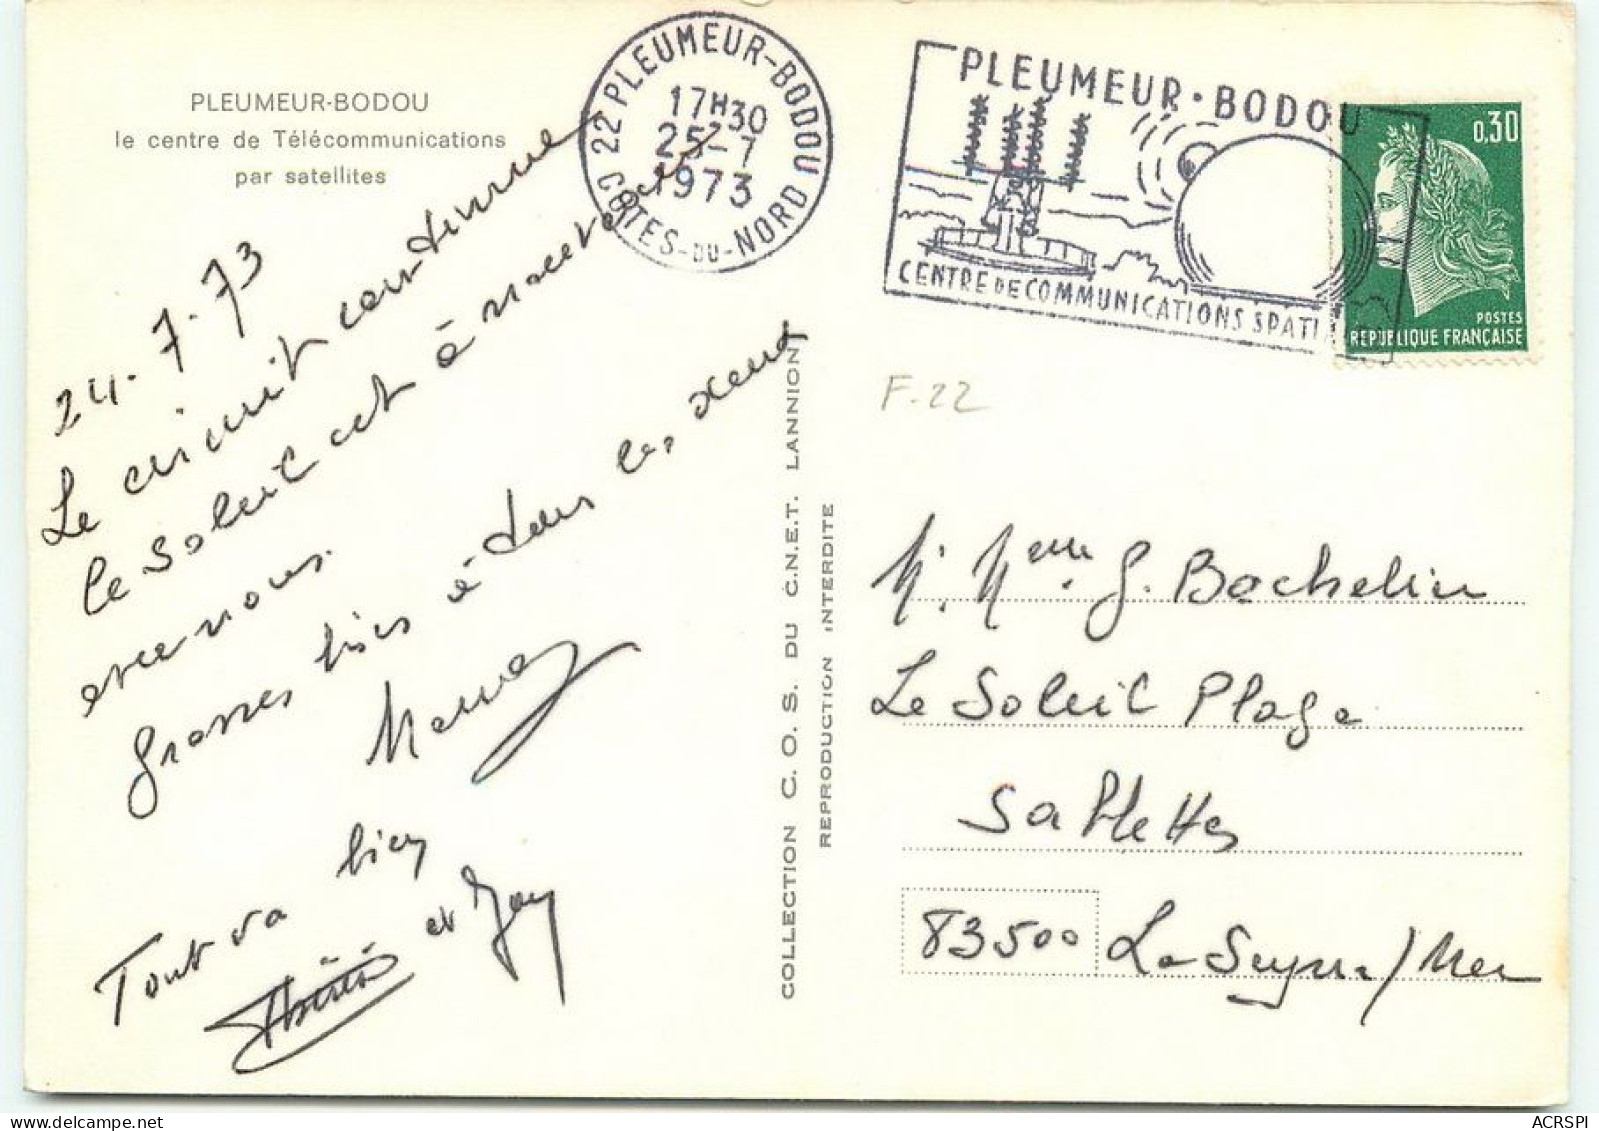 PLEUMEUR-BODOU
le centre de Télécommunications
par satellites
24.7.73
Le circuit continue
le Soleil est à notre
avec nous.
Grosses bises à tous les deux
Tout va bien
Thérèse et
COLLECTION C. O. S. DU C.N.E.T. LANNION
REPRODUCTION INTERDITE
22 PLEUMEUR-BODOU
17H30
25-7
1973
CÔTES-DU-NORD
PLEUMEUR·BODOU
CENTRE DE COMMUNICATIONS SPATI
0,30
POSTES
REPUBLIQUE FRANÇAISE
F.22
M. Mme G. Bachelin
Le Soleil Plage
Sablettes
83500 La Seyne/Mer
ACRSPI